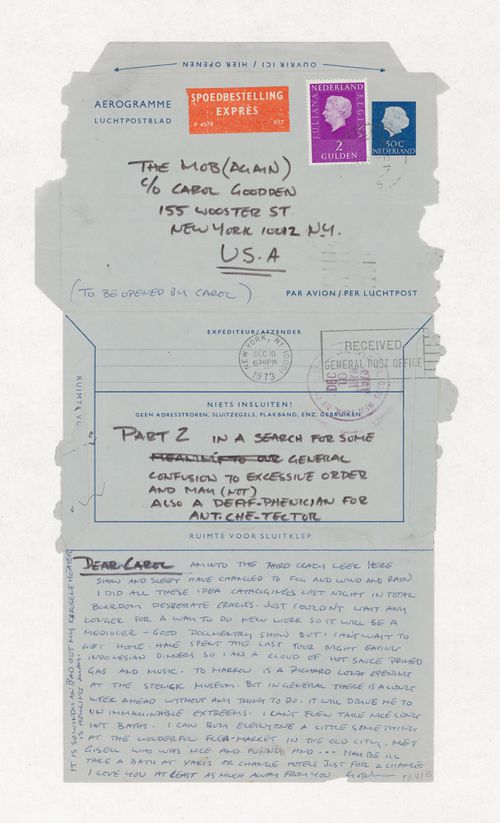 OUVRIR ICI / HIER OPENEN
AEROGRAMME
LUCHTPOSTBLAD
SPOEDBESTELLING
EXPRÈS
P 4578 PTT
NEDERLAND
JULIANA REGINA
2
GULDEN
50C
NEDERLAND
THE MOB (AGAIN)
C/O CAROL GOODDEN
155 WOOSTER ST.
NEW YORK 10012 N.Y.
U.S.A
(TO BE OPENED BY CAROL)
PAR AVION / PER LUCHTPOST
EXPÉDITEUR/AFZENDER
NEW YORK, NY 10001
DEC 10
6:30PM
1973
RECEIVED
GENERAL POST OFFICE
NIETS INSLUITEN!
GEEN ADRESSTROKEN, SLUITZEGELS, PLAKBAND, ENZ. GEBRUIKEN
PART 2 IN A SEARCH FOR SOME
MEANING TO OUR GENERAL
CONFUSION TO EXCESSIVE ORDER
AND MAN (NOT)
ALSO A DEAF-PHENICIAN FOR
ANT.CHE-TECTOR
RUIMTE VOOR SLUITKLEP
DEAR CAROL AM INTO THE THIRD CRAZY WEEK HERE
SNOW AND SLEET HAVE CHANGED TO FOG AND WIND AND RAIN
I DID ALL THESE IDEA CATALOGINGS LAST NIGHT IN TOTAL
BOARDOM DESPERATE CRAZIES. JUST COULDN'T WAIT ANY
LONGER FOR A WAY TO DO NEW WORK SO IT WILL BE A
MEDIOCER - GOOD DOCUMENTRY SHOW BUT I CAN'T WAIT TO
GET HOME. HAVE SPENT THE LAST FOUR NIGHT EATING
INDONESIAN DINNERS SO I AM A CLOUD OF HOT SAUCE PRIMED
GAS AND MUSIC. TO MARROW IS A RICHARD LONG OPENING
AT THE STELIGK MUSEUM. BUT IN GENERAL THERE IS A LONG
WEEK AHEAD WITHOUT ANY THING TO DO. IT WILL DRIVE ME TO
UN IMMAGINABLE EXTREEMS. I CAN'T EVEN TAKE NICE LONG
HOT BATHS. I CAN BUY EVERYONE A LITTLE SOMETHING
AT THE WONDERFUL FLEA-MARKET IN THE OLD CITY. MET
GISELL WHO WAS NICE AND FUNNY AND --- MAYBE ILL
TAKE A BATH AT YAKIS OR CHANGE HOTELS JUST FOR A CHANGE
I LOVE YOU AT LEAST AS MUCH AWAY FROM YOU
IT IS SO WINDY AN BAD OUT MY KEROSENE HEATER